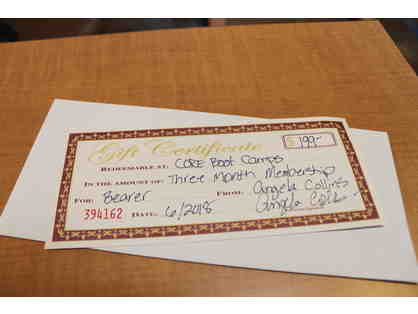 Gift Certificate $ 199-
REDEEMABLE AT: CORE Boot Camps
IN THE AMOUNT OF: Three Month Membership
FOR: Bearer FROM: Angela Collins
394162 DATE: 6/2018 Angela Collins